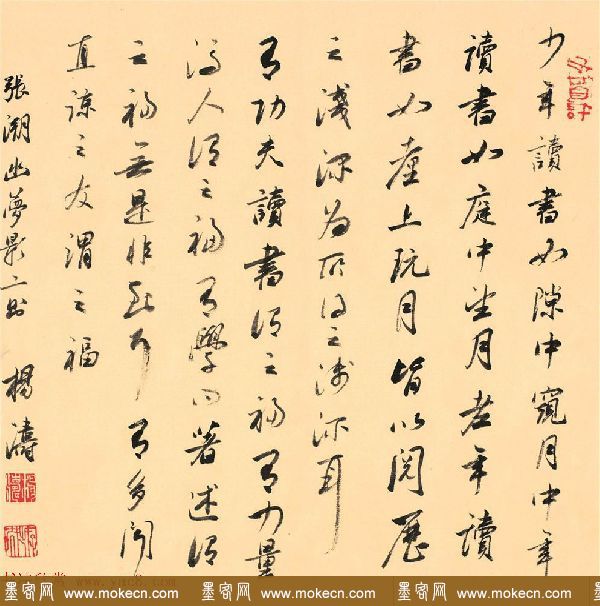 少年讀書如隙中窺月中年
讀書如庭中望月老年讀
書如臺上玩月皆以閱歷
之淺深為所得之淺深耳
有功夫讀書謂之福有力量
濟人謂之福有學問著述謂
之福無是非到耳有多聞
直諒之友謂之福
張潮幽夢影二則 楊濤
墨客网 www.mokecn.com 墨客网 www.mokecn.com 墨客网 www.mokecn.com